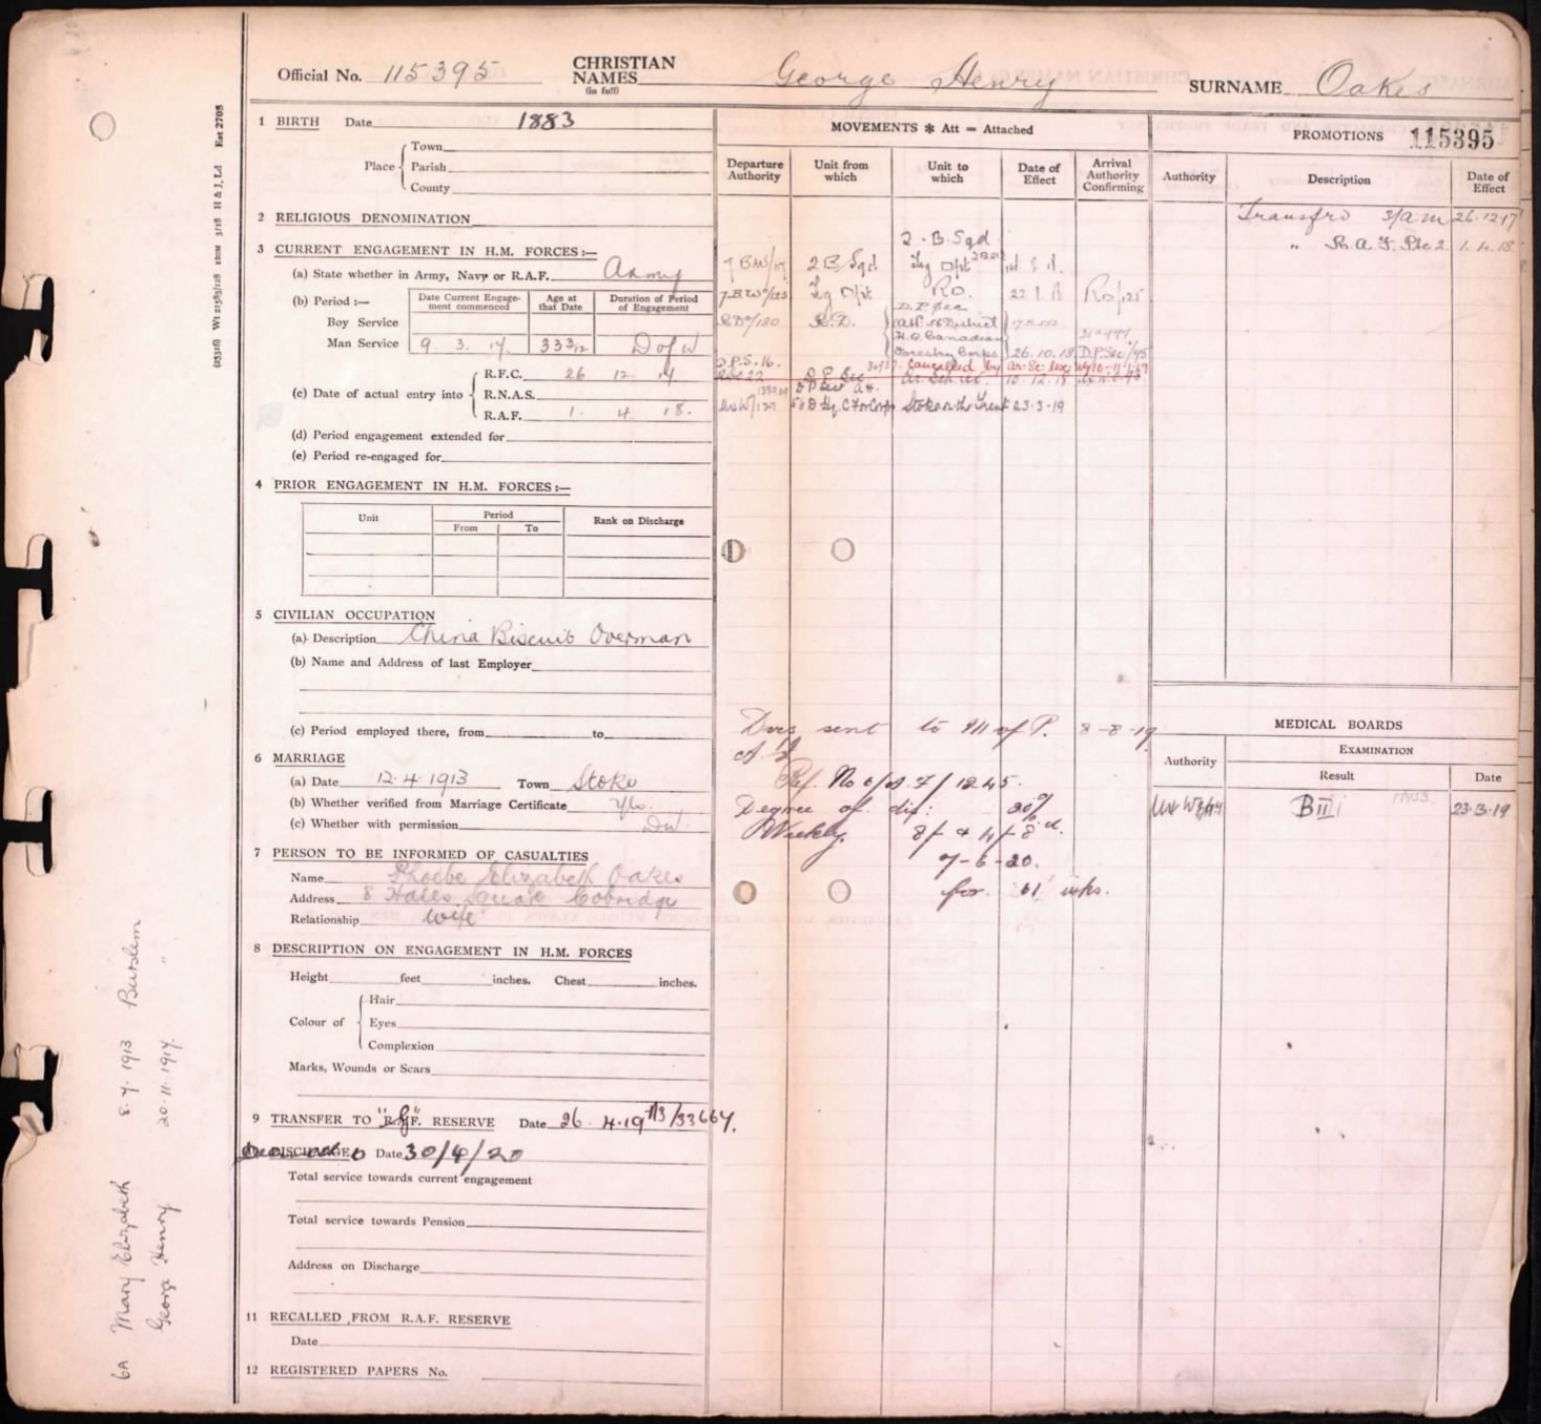 Official No. 115395 CHRISTIAN NAMES (in full) George Henry SURNAME Oakes
(03316) Wt 21583/1218 3/18 H & J, Ld Est 2705
1 BIRTH Date 1883
Place Town
Parish
County
2 RELIGIOUS DENOMINATION
3 CURRENT ENGAGEMENT IN H.M. FORCES:—
(a) State whether in Army, Navy or R.A.F. Army
(b) Period:— Date Current Engagement commenced Age at that Date Duration of Period of Engagement
Boy Service
Man Service 9. 3. 17. 33 3/12 D of W
(c) Date of actual entry into R.F.C. 26 12 17
R.N.A.S.
R.A.F. 1. 4 18.
(d) Period engagement extended for
(e) Period re-engaged for
4 PRIOR ENGAGEMENT IN H.M. FORCES:—
Unit Period Rank on Discharge
From To
5 CIVILIAN OCCUPATION
(a) Description China Biscuit Overman
(b) Name and Address of last Employer
(c) Period employed there, from to
6 MARRIAGE
(a) Date 12.4.1913 Town Stoke
(b) Whether verified from Marriage Certificate Yes.
(c) Whether with permission
7 PERSON TO BE INFORMED OF CASUALTIES
Name Phoebe Elizabeth Oakes
Address 8 Hales Square Cobridge
Relationship Wife
8 DESCRIPTION ON ENGAGEMENT IN H.M. FORCES
Height feet inches. Chest inches.
Colour of Hair
Eyes
Complexion
Marks, Wounds or Scars
9 TRANSFER TO "G" RESERVE Date 26.4.19
DISCHARGE Date 30/4/20
Total service towards current engagement
Total service towards Pension
Address on Discharge
11 RECALLED FROM R.A.F. RESERVE
Date
12 REGISTERED PAPERS No.
6A Mary Elizabeth 8.7.1913 Burslem
George Henry 20.11.1917. "
MOVEMENTS * Att = Attached
Departure Authority Unit from which Unit to which Date of Effect Arrival Authority Confirming
2.B.Sqd
2 B Sqd
R.D. RD/125
D.P. Sec
H.Q. Canadian
Forestry Corps 26.10.18 D.P. Sec/45
D.P.S. 16. Cancelled by
10.12.18
Stoke on the Trent 23-3-19
Docs sent to M of P. 8-8-19
Ref. No
Degree of dis: 20%
Weekly. 8/- + 4/- 8 d.
7-6-20.
for 61 wks.
PROMOTIONS 115395
Authority Description Date of Effect
Transfrd 3/a.m 26.12.17
" R.A.F. Pte 2 1.4.18
MEDICAL BOARDS
Authority EXAMINATION
Result Date
BIIi 23.3.19